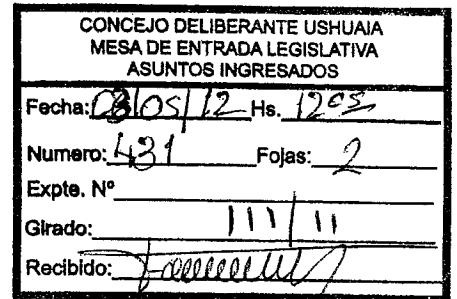 CONCEJO DELIBERANTE USHUAIA
MESA DE ENTRADA LEGISLATIVA
ASUNTOS INGRESADOS
Fecha: 03/05/12 Hs. 12 05
Numero: 431 Fojas: 2
Expte. Nº
Girado: 111/11
Recibido: